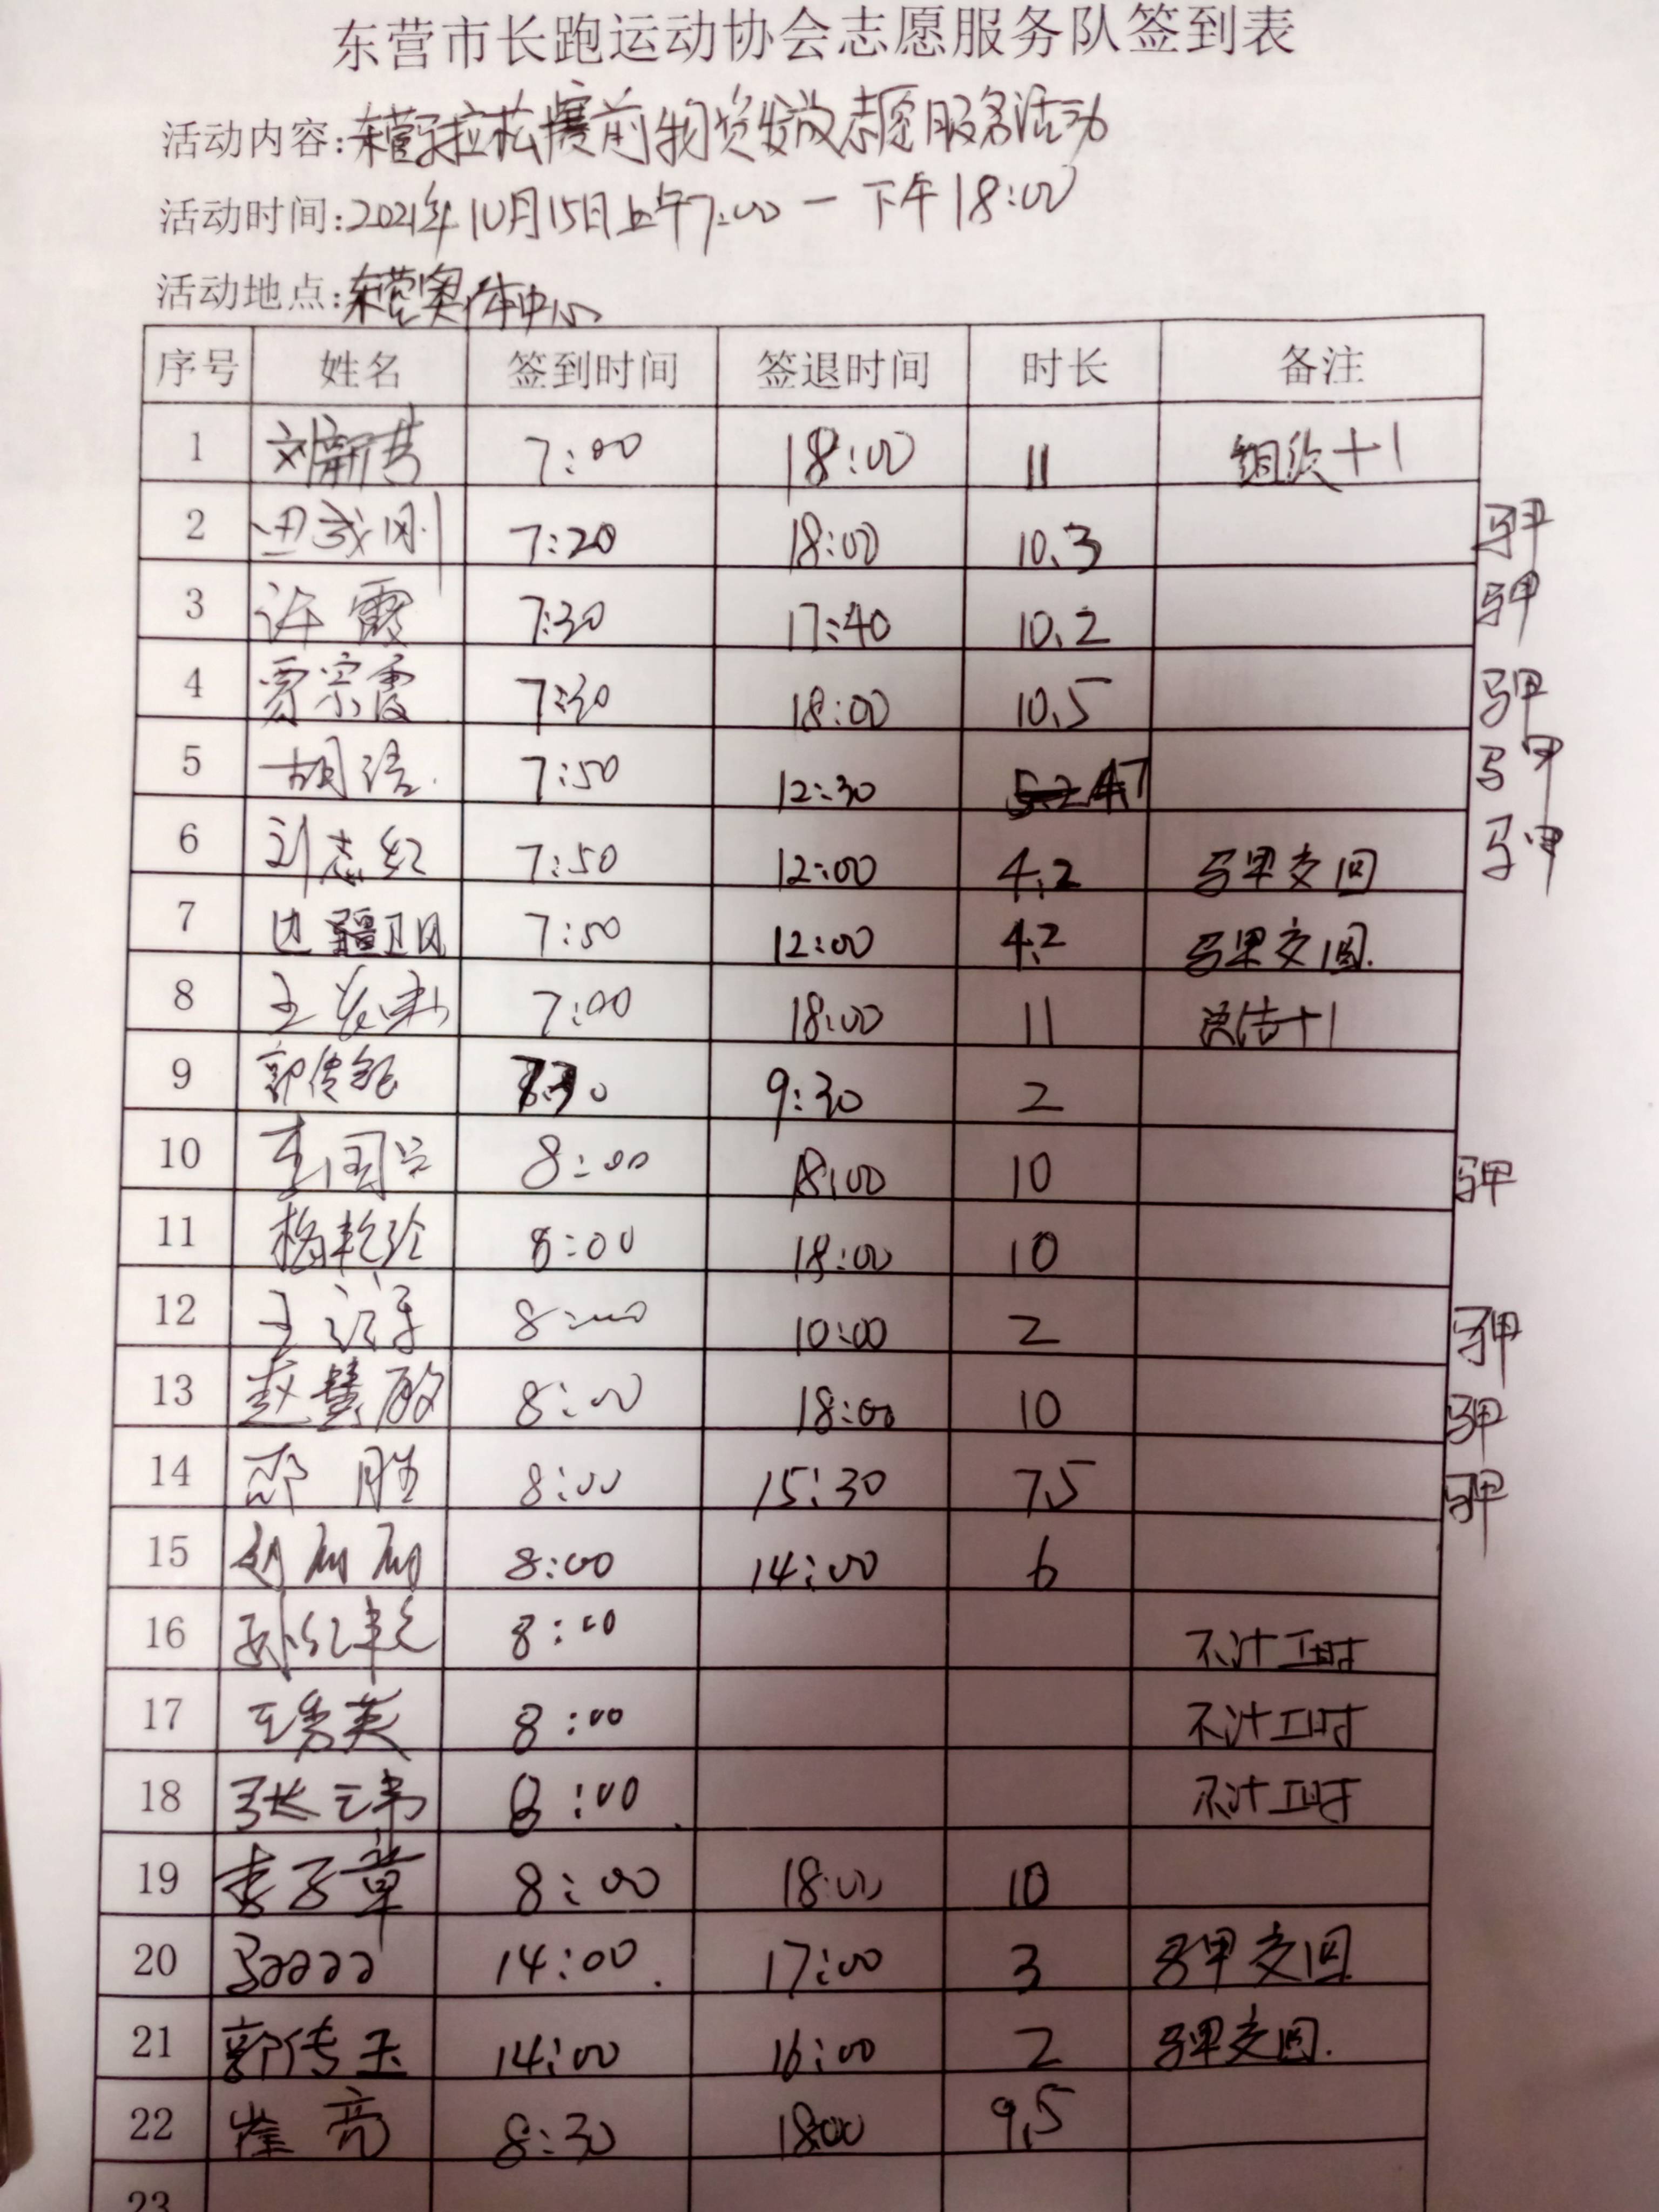 东营市长跑运动协会志愿服务队签到表
活动内容:东营马拉松赛前物资发放志愿服务活动
活动时间:2021年10月15日上午7:00一下午18:00
活动地点:东营奥体中心
序号 姓名 签到时间 签退时间 时长 备注
1 7:00 18:00 11 +1
2 7:20 18:00 10.3 马甲
3 许霞 7:30 17:40 10.2 马甲
4 贾宗霞 7:30 18:00 10.5 马甲
5 胡 7:50 12:30 4.7 马甲
6 刘志红 7:50 12:00 4.2 马甲交回 马甲
7 边疆卫风 7:50 12:00 4.2 马甲交回.
8 王 7:00 18:00 11 总结+1
9 郭传 7:30 9:30 2
10 国 8:00 18:00 10 马甲
11 杨艳玲 8:00 18:00 10
12 王 8:00 10:00 2 马甲
13 赵慧敏 8:00 18:00 10 马甲
14 胜 8:00 15:30 7.5 马甲
15 赵丽丽 8:00 14:00 6
16 孙红艳 8:00 不计工时
17 王秀英 8:00 不计工时
18 张玉伟 8:00 不计工时
19 李子章 8:00 18:00 10
20 14:00 17:00 3 马甲交回
21 郭传玉 14:00 16:00 2 马甲交回.
22 崔亮 8:30 18:00 9.5
23